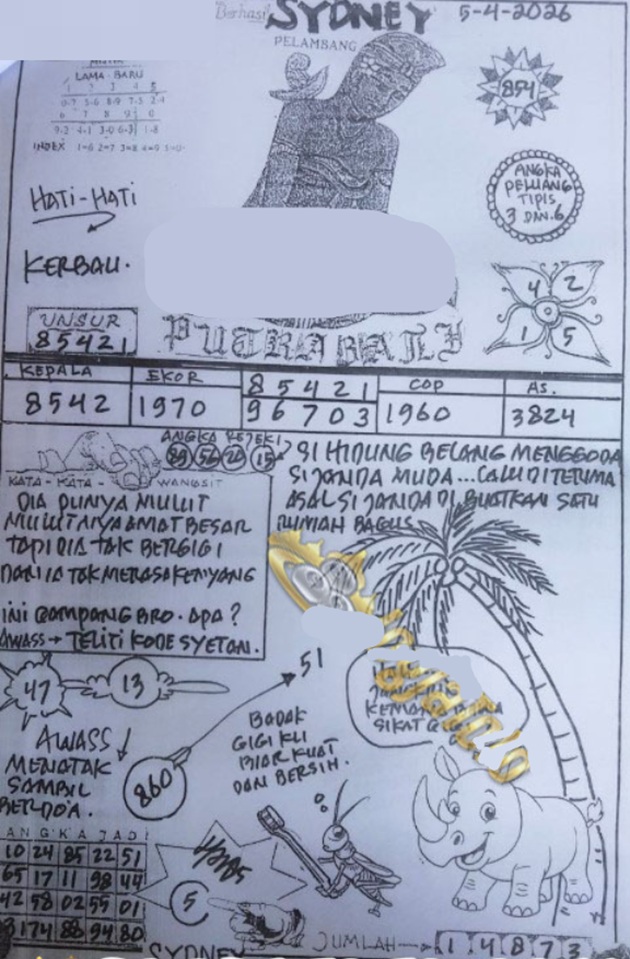 Berhasil SYDNEY 5-4-2026
PELAMBANG
LAMA - BARU
1 2 3 4 5
0-7 5-6 8-9 7-3 2-4
6 7 8 9 0
9-2 4-1 3-0 6-3 1-8
INDEX 1=6 2=7 3=8 4=9 5=0
854
HATI-HATI
ANGKA
PELUANG
TIPIS
3 DAN.6
KERBAU.
4 2
1 5
UNSUR
85421
PUTRA BALI
KEPALA EKOR 85421 COP AS.
8542 1970 96703 1960 3824
ANGKA REJEKI
15
KATA - KATA - WANGSIT
SI HIDUNG BELANG MENGGODA
SI JANDA MUDA...LALU DITERIMA
ASAL SI JANDA DI BUATKAN SATU
RUMAH BAGUS
DIA PUNYA MULUT
MULUTNYA AMAT BESAR
TAPI DIA TAK BERGIGI
DAN IA TAK MERASA KENYANG
INI GAMPANG BRO. APA?
AWASS → TELITI KODE SYETAN.
47
13
51
JANGKRIK
SIKAT
BADAK
GIGI KU
BIAR KUAT
DAN BERSIH.
AWASS
MENATAK
SAMBIL
BERDO'A.
860
ANGKA JADI
10 24 85 22 51
65 17 11 98 44
42 58 02 55 01
3174 88 94 80
5
SYDNEY
JUMLAH 1 4 8 7 3